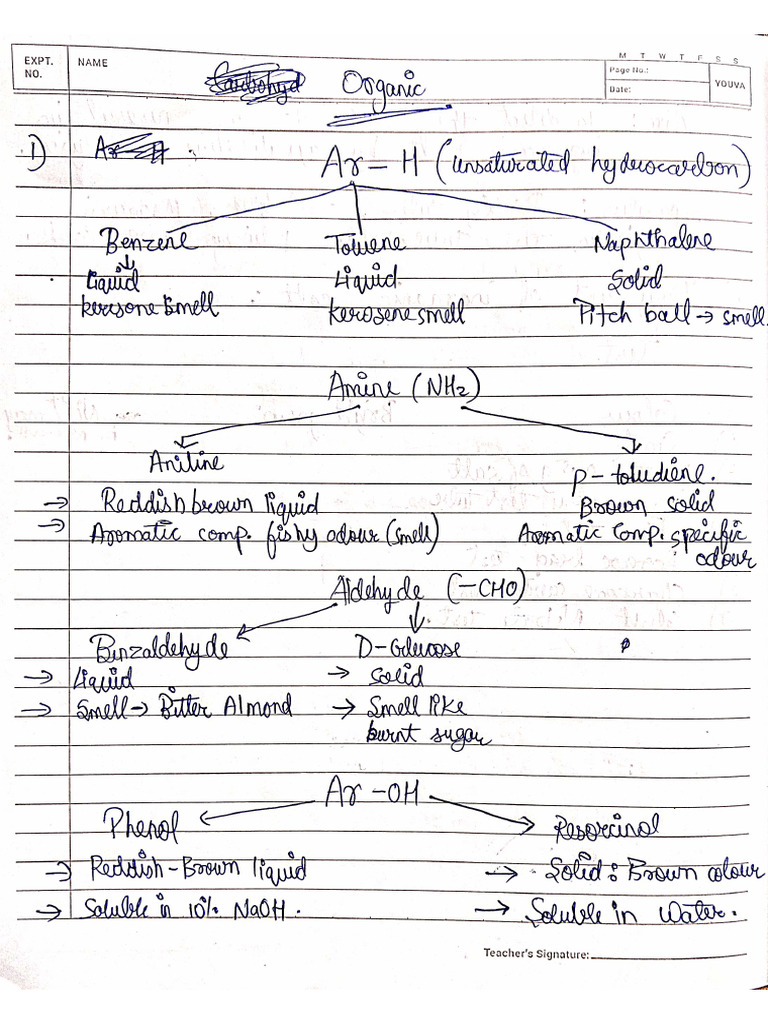 EXPT. NO.
NAME
M T W T F S S
Page No.:
Date:
YOUVA
Carbohyd Organic
1) Ar-H Ar – H (unsaturated hydrocarbon)
Benzene Toluene Naphthalene
Liquid Liquid Solid
kersone smell kerosene smell Pitch ball → smell.
Amine (NH2)
Aniline p-toludiene.
→ Reddish brown liquid Brown solid
→ Aromatic comp. fishy odour (smell) Aromatic Comp. specific odour
Aldehyde (-CHO)
Binzaldehyde D-Glucose
→ Liquid → Solid
→ Smell → Bitter Almond → Smell like
burnt sugar
Ar -OH
Phenol Resorcinol
→ Reddish-Brown liquid → Solid : Brown colour
→ Soluble in 10% NaOH. → Soluble in Water.
Teacher's Signature: